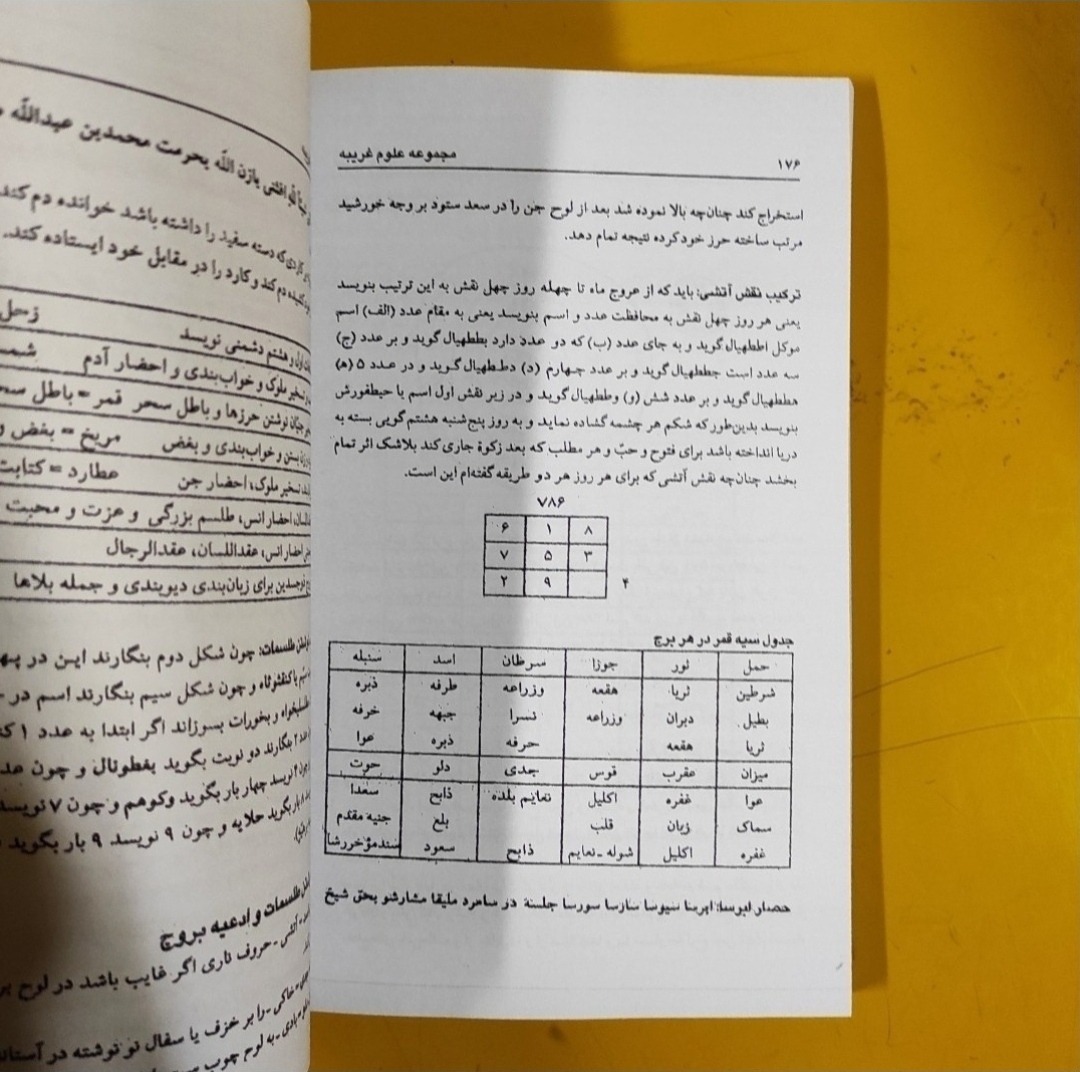 ۱۷۶ مجموعه علوم غریبه
استخراج کند چنان‌چه بالا نموده شد بعد از لوح جن را در سعد ستود بر وجه خورشید
مرتب ساخته حرز خود کرده نتیجه تمام دهد.
ترکیب نقش آتشی: باید که از عروج ماه تا چهله روز چهل نقش به این ترتیب بنویسد
یعنی هر روز چهل نقش به محافظت عدد و اسم بنویسد یعنی به مقام عدد (الف) اسم
موکل اططهیال گوید و به جای عدد (ب) که دو عدد دارد بططهیال گوید و بر عدد (ج)
سه عدد است جططهیال گوید و بر عدد چهارم (د) دططهیال گوید و در عدد ۵ (ه)
هططهیال گوید و بر عدد شش (و) وططهیال گوید و در زیر نقش اول اسم یا حیطفورش
بنویسد بدین‌طور که شکم هر چشمه گشاده نماید و به روز پنج‌شنبه هشتم گویی بسته به
دریا انداخته باشد برای فتوح و حبّ و هر مطلب که بعد زکوة جاری کند بلاشک اثر تمام
بخشد چنان‌چه نقش آتشی که برای هر روز هر دو طریقه گفته‌ام این است.
۷۸۶
۸ ۱ ۶
۳ ۵ ۷
۴ ۹ ۲
جدول سیه قمر در هر برج
حمل ثور جوزا سرطان اسد سنبله
شرطین ثریا هقعه وزراعه طرفه ذبره
بطیل دبران وزراعه نسرا جبهه خرفه
ثریا هقعه حرفه ذبره عوا
میزان عقرب قوس جدی دلو حوت
عوا غفره اکلیل نعایم بلده ذابح سعدا
سماک زبان قلب بلع جنیه مقدم
غفره اکلیل شوله - نعایم ذابح سعود
حصار ابوسا: اپرسا سیوسا سازسا سورسا جلسة در سامرد ملیقا مشارشو بحق شیخ
افثنی بازن اللّه بحرمت محمدبن عبداللّه
کاردی که دسته سفید را داشته باشد خوانده دم کند
دم کند و کارد را در مقابل خود ایستاده کند.
اول و هشتم دشمنی نویسد زحل
تسخیر ملوک و خواب‌بندی و احضار آدم شمس
نوشتن حرزها و باطل سحر قمر = باطل سحر
بستن و خواب‌بندی و بغض مریخ = بغض و
تسخیر ملوک، احضار جن عطارد = کتابت
احضار انس، طلسم بزرگی و عزت و محبت
احضار انس، عقداللسان، عقدالرجال
برای زبان‌بندی دیوبندی و جمله بلاها
طلسمات: چون شکل دوم بنگارند این در
و چون شکل سیم بنگارند اسم در
و بخورات بسوزاند اگر ابتدا به عدد ۱
بنگارند دو نوبت بگوید بغطونال و چون
نویسد چهار بار بگوید وکوهم و چون ۷ نویسد
بار بگوید حلایه و چون ۹ نویسد ۹ بار بگوید
طلسمات و ادعیه بروج
آتشی - حروف ناری اگر غایب باشد در لوح
خاکی - را بر خزف یا سفال نو نوشته در
بادی - به لوح چوب